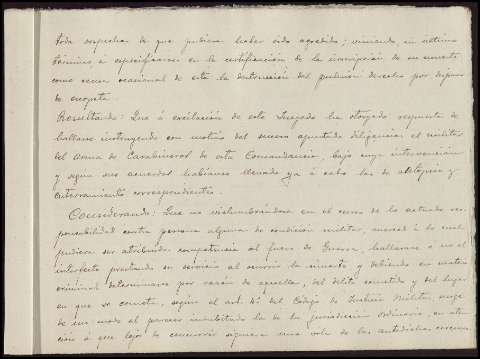 toda sospecha de que pudiera haber sido agredido; viniendo, en último
término, a especificarse en la certificación de la inscripción de su muerte
como causa ocasional de esta la destrucción del pulmón derecho por disparo
de escopeta.
Resultando: Que á excitación de este Juzgado ha otorgado respuesta de
hallarse instruyendo con motivo del suceso apuntado diligencias el militar
del arma de Carabineros de esta Comandancia, bajo cuya intervención
y segun sus acuerdos habíanse llevado ya á cabo las de autópsia y
enterramiento correspondientes.
Considerando: Que no vislumbrándose en el curso de lo actuado res-
ponsabilidad contra persona alguna de condición militar, merced á la cual
pudiera ser atribuida competencia al fuero de Guerra, hallarase ó no el
interfecto prestando su servicio al ocurrir la muerte y debiendo en materia
criminal determinarse por razón de aquella, del delito cometido y del lugar
en que se cometa, según el art. 4º del Código de Justicia Militar, surge
de un modo al parecer indubitado la de la jurisdicción ordinaria, en aten-
ción á que lejos de concurrir siquiera una sola de las antedichas circuns